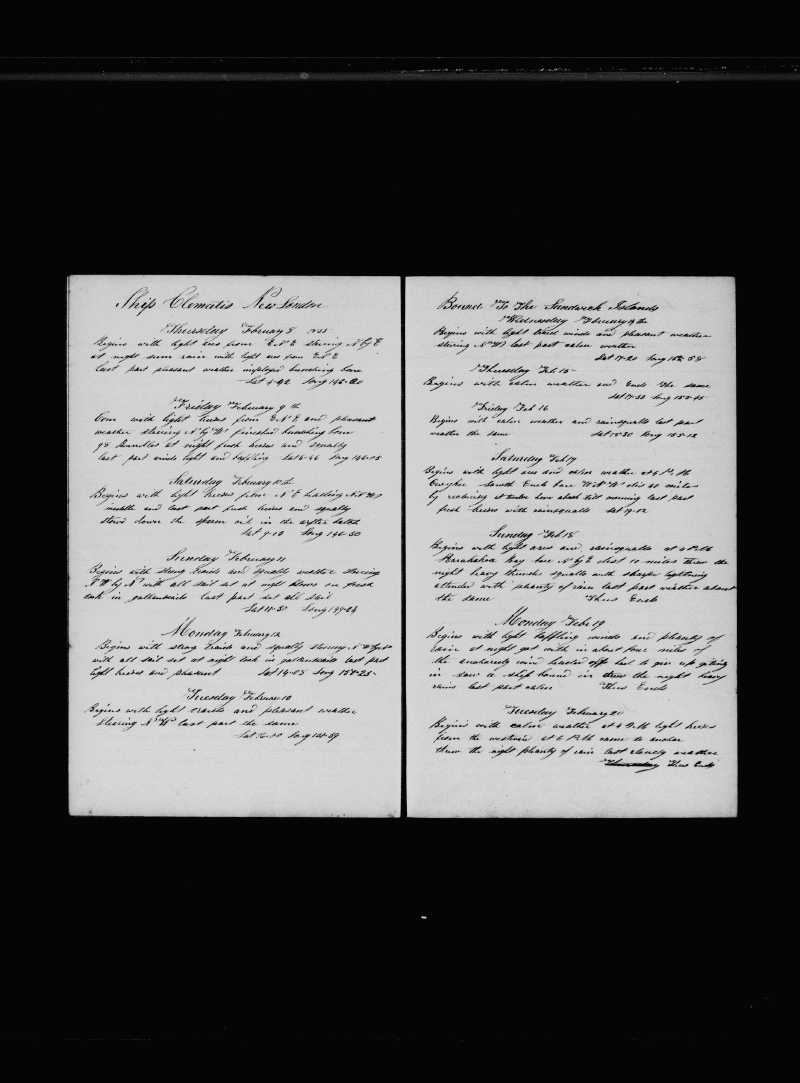 Ship Clematis New London
Thursday February 8 1855
Begins with light airs from E N E steering N by E
at night some rain with light airs from E N E
last part pleasant weather imployed bunching bone
Lat 4-42 Long 146-20
Friday February 9th
Com with light breses from E N E and pleasant
weather stearing N by W finished bunching bone
98 bundles at night fresh breses and squally
last part winds light and baffling Lat 6-46 Long 146-05
Saturday February 10th
Begins with light breses from N E heading N N W
middle and last part fresh breses and squally
stowd down the sperm oil in the after hatch
Lat 9-13 Long 146-50
Sunday February 11
Begins with strong trades and squally weather stearing
N W by N with all sail set at night blows on fresh
took in gallantsails last part set all sail
Lat 11-50 Long 149-24
Monday February 12
Begins with strong trades and squally stearing N W
with all sail set at night took in gallantsails last part
light breses and pleasant Lat 14-05 Long 151-25
Tuesday February 13
Begins with light trades and pleasant weather
steering N W last part the same
Lat 16-00 Long 151-59
Bound To The Sandwich Islands
Wednesday February 14th
Begins with light trade winds and pleasant weather
stearing N W last part calm weather
Lat 17-20 Long 152-58
Thursday Feb 15
Begins with calm weather and Ends the same
Lat 17-53 Long 153-45
Friday Feb 16
Begins with calm weather and rainsqualls last part
weather the same Lat 18-30 Long 155-12
Saturday Feb 17
Begins with light airs and calm weather at 4 P.M
Owyhee South End bore W N W dist 40 miles
by reckning at twelve hove aback till morning last part
fresh breses with rainsqualls Lat 19-02
Sunday Feb 18
Begins with light ares and rainsqualls at 2 P.M
Karakakoa Bay bore N by E dist 10 miles threw the
night heavy thunder squalls with sharpe lightning
attended with plenty of rain last part weather about
the same Thus Ends
Monday Feb 19
Begins with light baffling winds and plenty of
rain at night got with in about four miles of
the anchorety wind headed off had to give up going
in saw a ship bound in threw the night heavy
rains last part calm Thus Ends
Tuesday February 20
Begins with calm weather at 4 P.M light breses
from the westward at 6 P.M came to anchor
threw the night plenty of rain last cloudy weather
Thus Ends